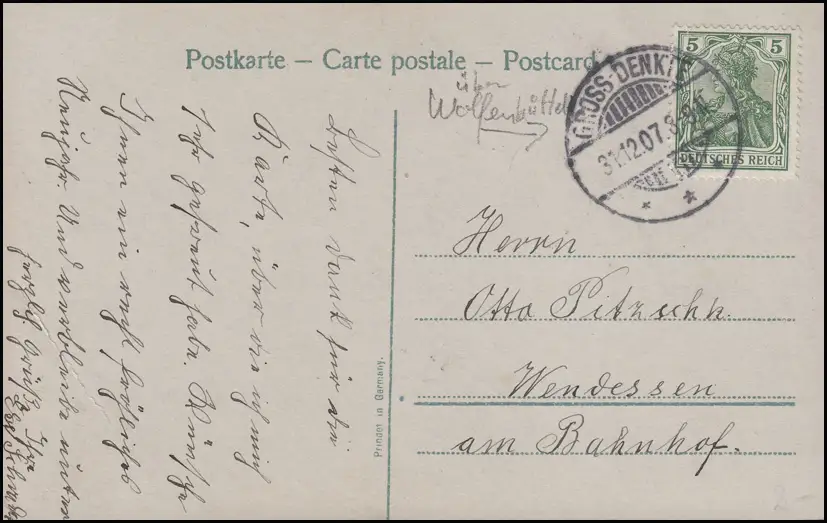 Postkarte – Carte postale – Postcard
über
Wolfenbüttel
GROSS-DENKTE
31.12.07.
5 5
DEUTSCHES REICH
Herrn
Otto Pitzschk.
Wendessen
am Bahnhof.
Printed in Germany.
Besten Dank für die
Karte, über die ich mich
sehr gefreut habe. Wünsche
Ihnen ein recht fröhliches
Neujahr. Und verbleibe unter
herzlg. Grüße Ihr